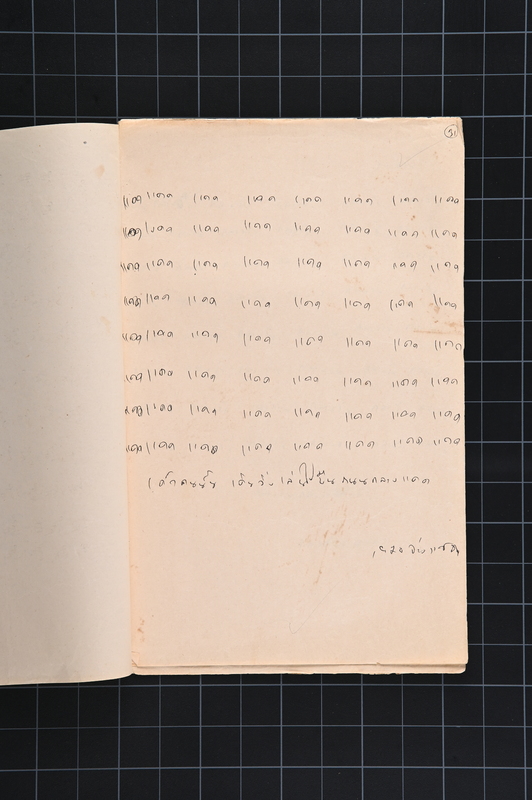 31
แดด แดด แดด แดด แดด แดด แดด แดด
แดด แดด แดด แดด แดด แดด แดด แดด
แดด แดด แดด แดด แดด แดด แดด แดด
แดด แดด แดด แดด แดด แดด แดด แดด
แดด แดด แดด แดด แดด แดด แดด แดด
แดด แดด แดด แดด แดด แดด แดด แดด
แดด แดด แดด แดด แดด แดด แดด แดด
แดด แดด แดด แดด แดด แดด แดด แดด
เด็กคนนั้น เดินวิ่งเล่นไปบนถนนกลางแดด
จ่าง แซ่ตั้ง